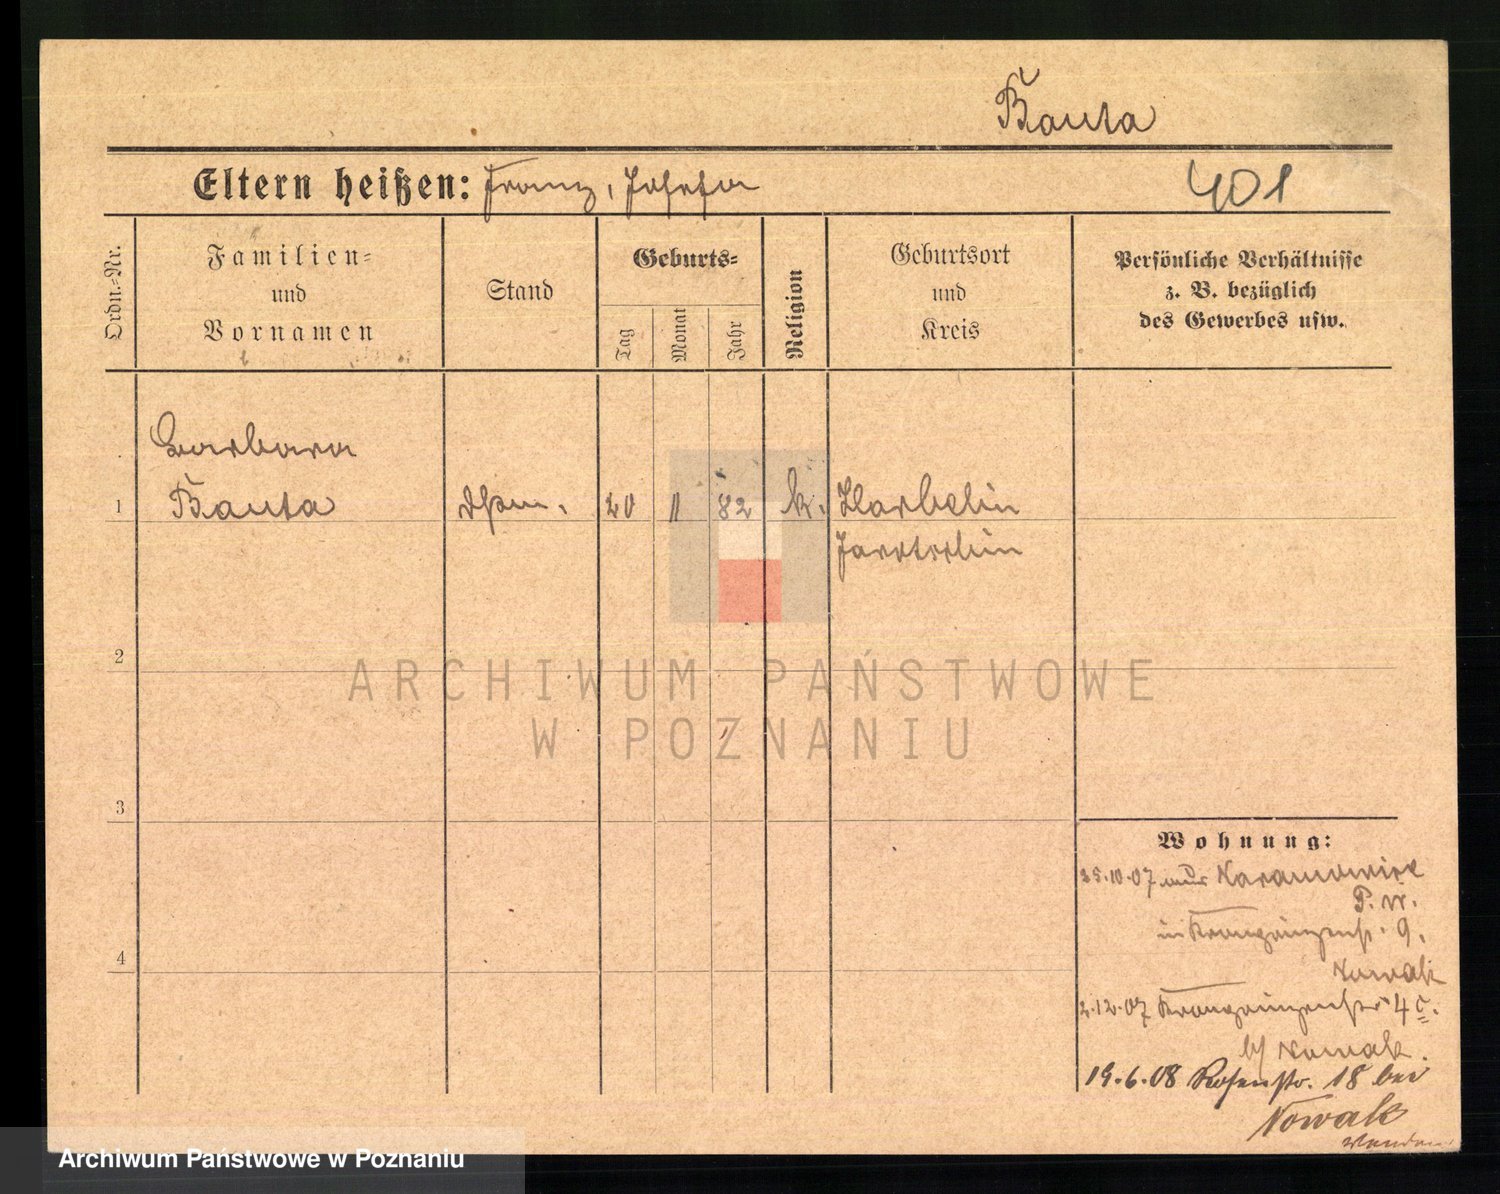 Bauta
Eltern heißen: Franz, Josefa
401
Ordn.-Nr.
Familien-
und
Vornamen
Stand
Geburts-
Tag
Monat
Jahr
Religion
Geburtsort
und
Kreis
Persönliche Verhältnisse
z. B. bezüglich
des Gewerbes usw.
Barbara
1 Bauta 20 11 82 k.
2
3
4
ARCHIWUM PAŃSTWOWE
W POZNANIU
Wohnung:
25.10.07 aus
P. W.
in Kronprinzenstr. 9.
Nowak
2.12.07 Kronprinzenstr. 4c.
b/ Nowak.
19.6.08 Rosenstr. 18 bei
Nowak
Archiwum Państwowe w Poznaniu